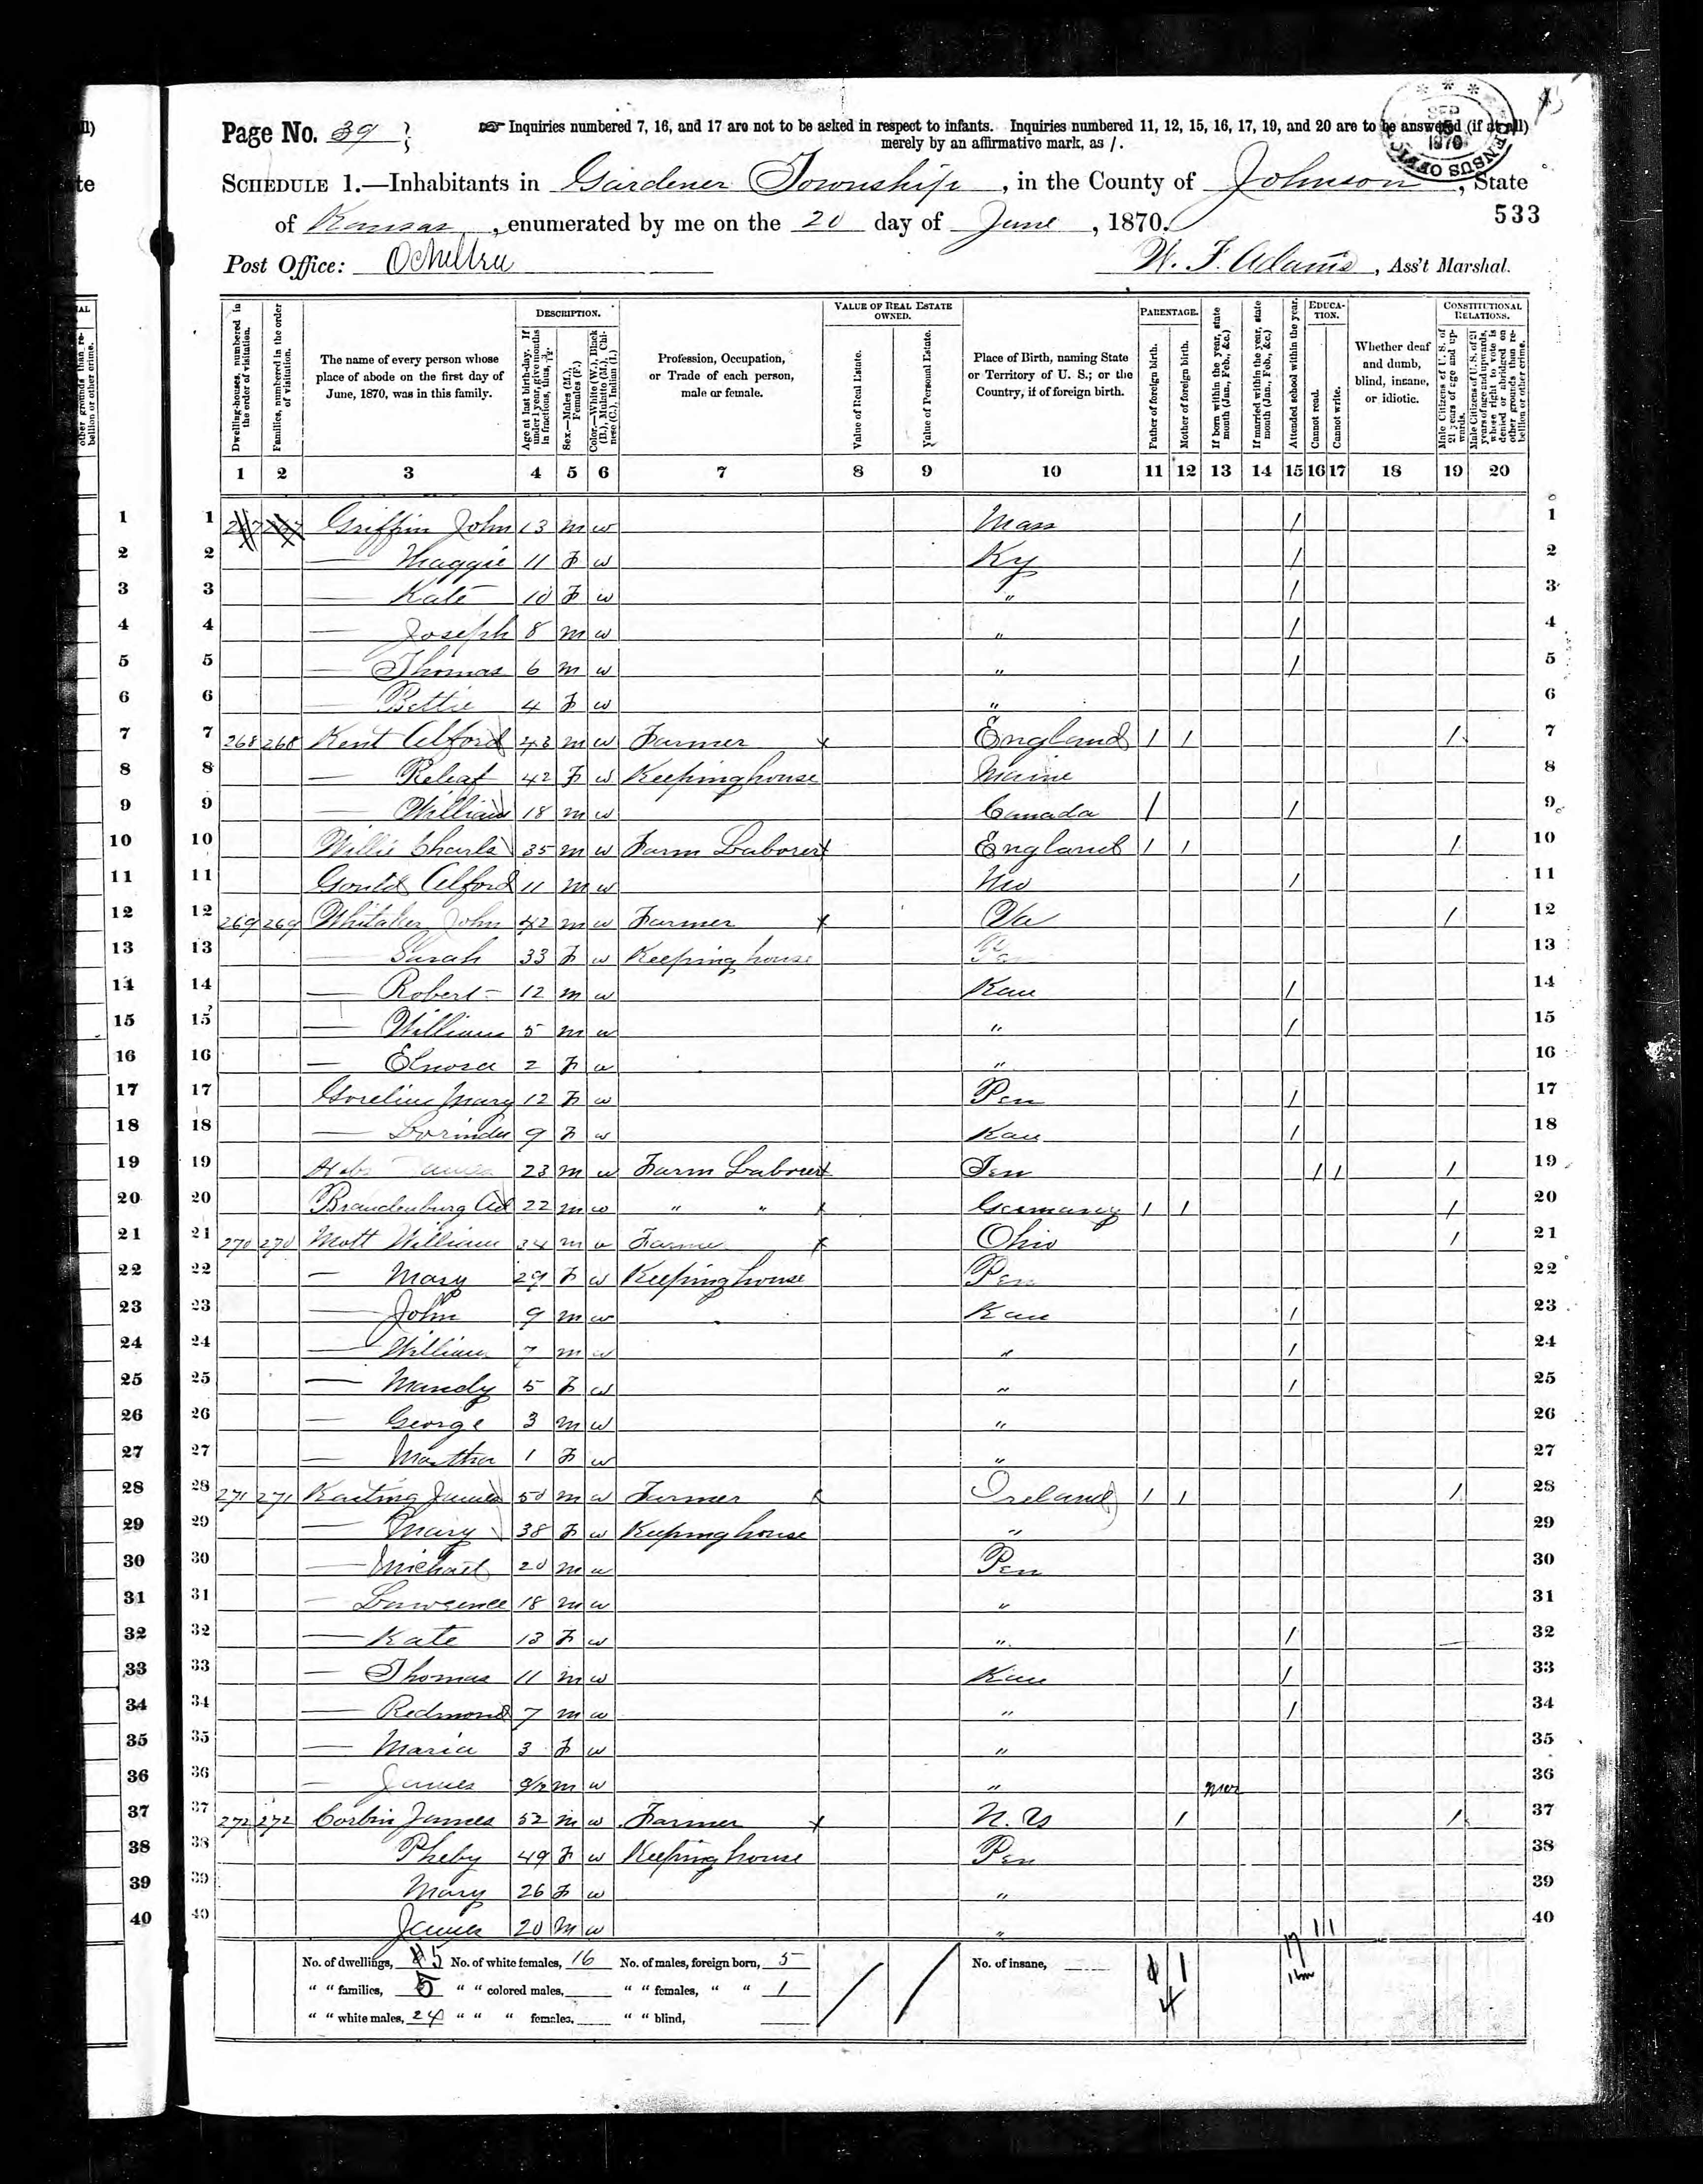 Page No. 39
Inquiries numbered 7, 16, and 17 are not to be asked in respect to infants. Inquiries numbered 11, 12, 15, 16, 17, 19, and 20 are to be answered (if at all)
merely by an affirmative mark, as /.
SCHEDULE 1.—Inhabitants in Gardener Township, in the County of Johnson, State
of Kansas, enumerated by me on the 20 day of June, 1870.
533
Post Office: Ocheltree
W. F. Adams, Ass't Marshal.
Dwelling-houses, numbered in the order of visitation.
Families, numbered in the order of visitation.
The name of every person whose place of abode on the first day of June, 1870, was in this family.
DESCRIPTION.
Age at last birth-day. If under 1 year, give months in fractions, thus, 3/12.
Sex.—Males (M.), Females (F.)
Color.—White (W.), Black (B.), Mulatto (M.), Chinese (C.), Indian (I.)
Profession, Occupation, or Trade of each person, male or female.
VALUE OF REAL ESTATE OWNED.
Value of Real Estate.
Value of Personal Estate.
Place of Birth, naming State or Territory of U. S.; or the Country, if of foreign birth.
PARENTAGE.
Father of foreign birth.
Mother of foreign birth.
If born within the year, state month (Jan., Feb., &c.)
If married within the year, state month (Jan., Feb., &c.)
Attended school within the year.
EDUCATION.
Cannot read.
Cannot write.
Whether deaf and dumb, blind, insane, or idiotic.
CONSTITUTIONAL RELATIONS.
Male Citizens of U. S. of 21 years of age and upwards.
Male Citizens of U. S. of 21 years of age and upwards, whose right to vote is denied or abridged on other grounds than rebellion or other crime.
1 2 3 4 5 6 7 8 9 10 11 12 13 14 15 16 17 18 19 20
1 267 267 Griffin John 13 m w Mass / 1
2 — Maggie 11 F w Ky / 2
3 — Kate 10 F w " / 3
4 — Joseph 8 m w " / 4
5 — Thomas 6 m w " / 5
6 — Bettie 4 F w " 6
7 268 268 Kent Alford 43 m w Farmer x England / / / 7
8 — Releaf 42 F w Keeping house Maine 8
9 — William 18 m w Canada / / 9
10 Willis Charls 35 m w Farm Laborer x England / / / 10
11 Gould Alford 11 m w / 11
12 269 269 Whitaker John 42 m w Farmer x Va / 12
13 — Sarah 33 F w Keeping house 13
14 — Robert 12 m w Kan / 14
15 — William 5 m w " / 15
16 — Elnora 2 F w " 16
17 Mary 12 F w Pen / 17
18 — Dorinda 9 F w Kan / 18
19 23 m w Farm Laborer x Ten / / / 19
20 Brandenburg Ad 22 m w " " x Germany / / / 20
21 270 270 Mott William 34 m w Farmer x Ohio / 21
22 — Mary 29 F w Keeping house Pen 22
23 — John 9 m w Kan / 23
24 — William 7 m w " / 24
25 — Mandy 5 F w " / 25
26 — George 3 m w " 26
27 — Martha 1 F w " 27
28 271 271 Kasting James 50 m w Farmer x Ireland / / / 28
29 — Mary 38 F w Keeping house " 29
30 — Michael 20 m w Pen 30
31 — Lawrence 18 m w " 31
32 — Kate 13 F w " / 32
33 — Thomas 11 m w Kan / 33
34 — Redmond 7 m w " / 34
35 — Maria 3 F w " 35
36 — James 9/12 m w " 36
37 272 272 Corbin James 52 m w Farmer x N. Y / / 37
38 Pheby 49 F w Keeping house Pen 38
39 Mary 26 F w " 39
40 James 20 M w " / / 40
No. of dwellings, 5 No. of white females, 16 No. of males, foreign born, 5 No. of insane,
" " families, 5 " " colored males, " " females, " " 1
" " white males, 24 " " " females, " " blind,